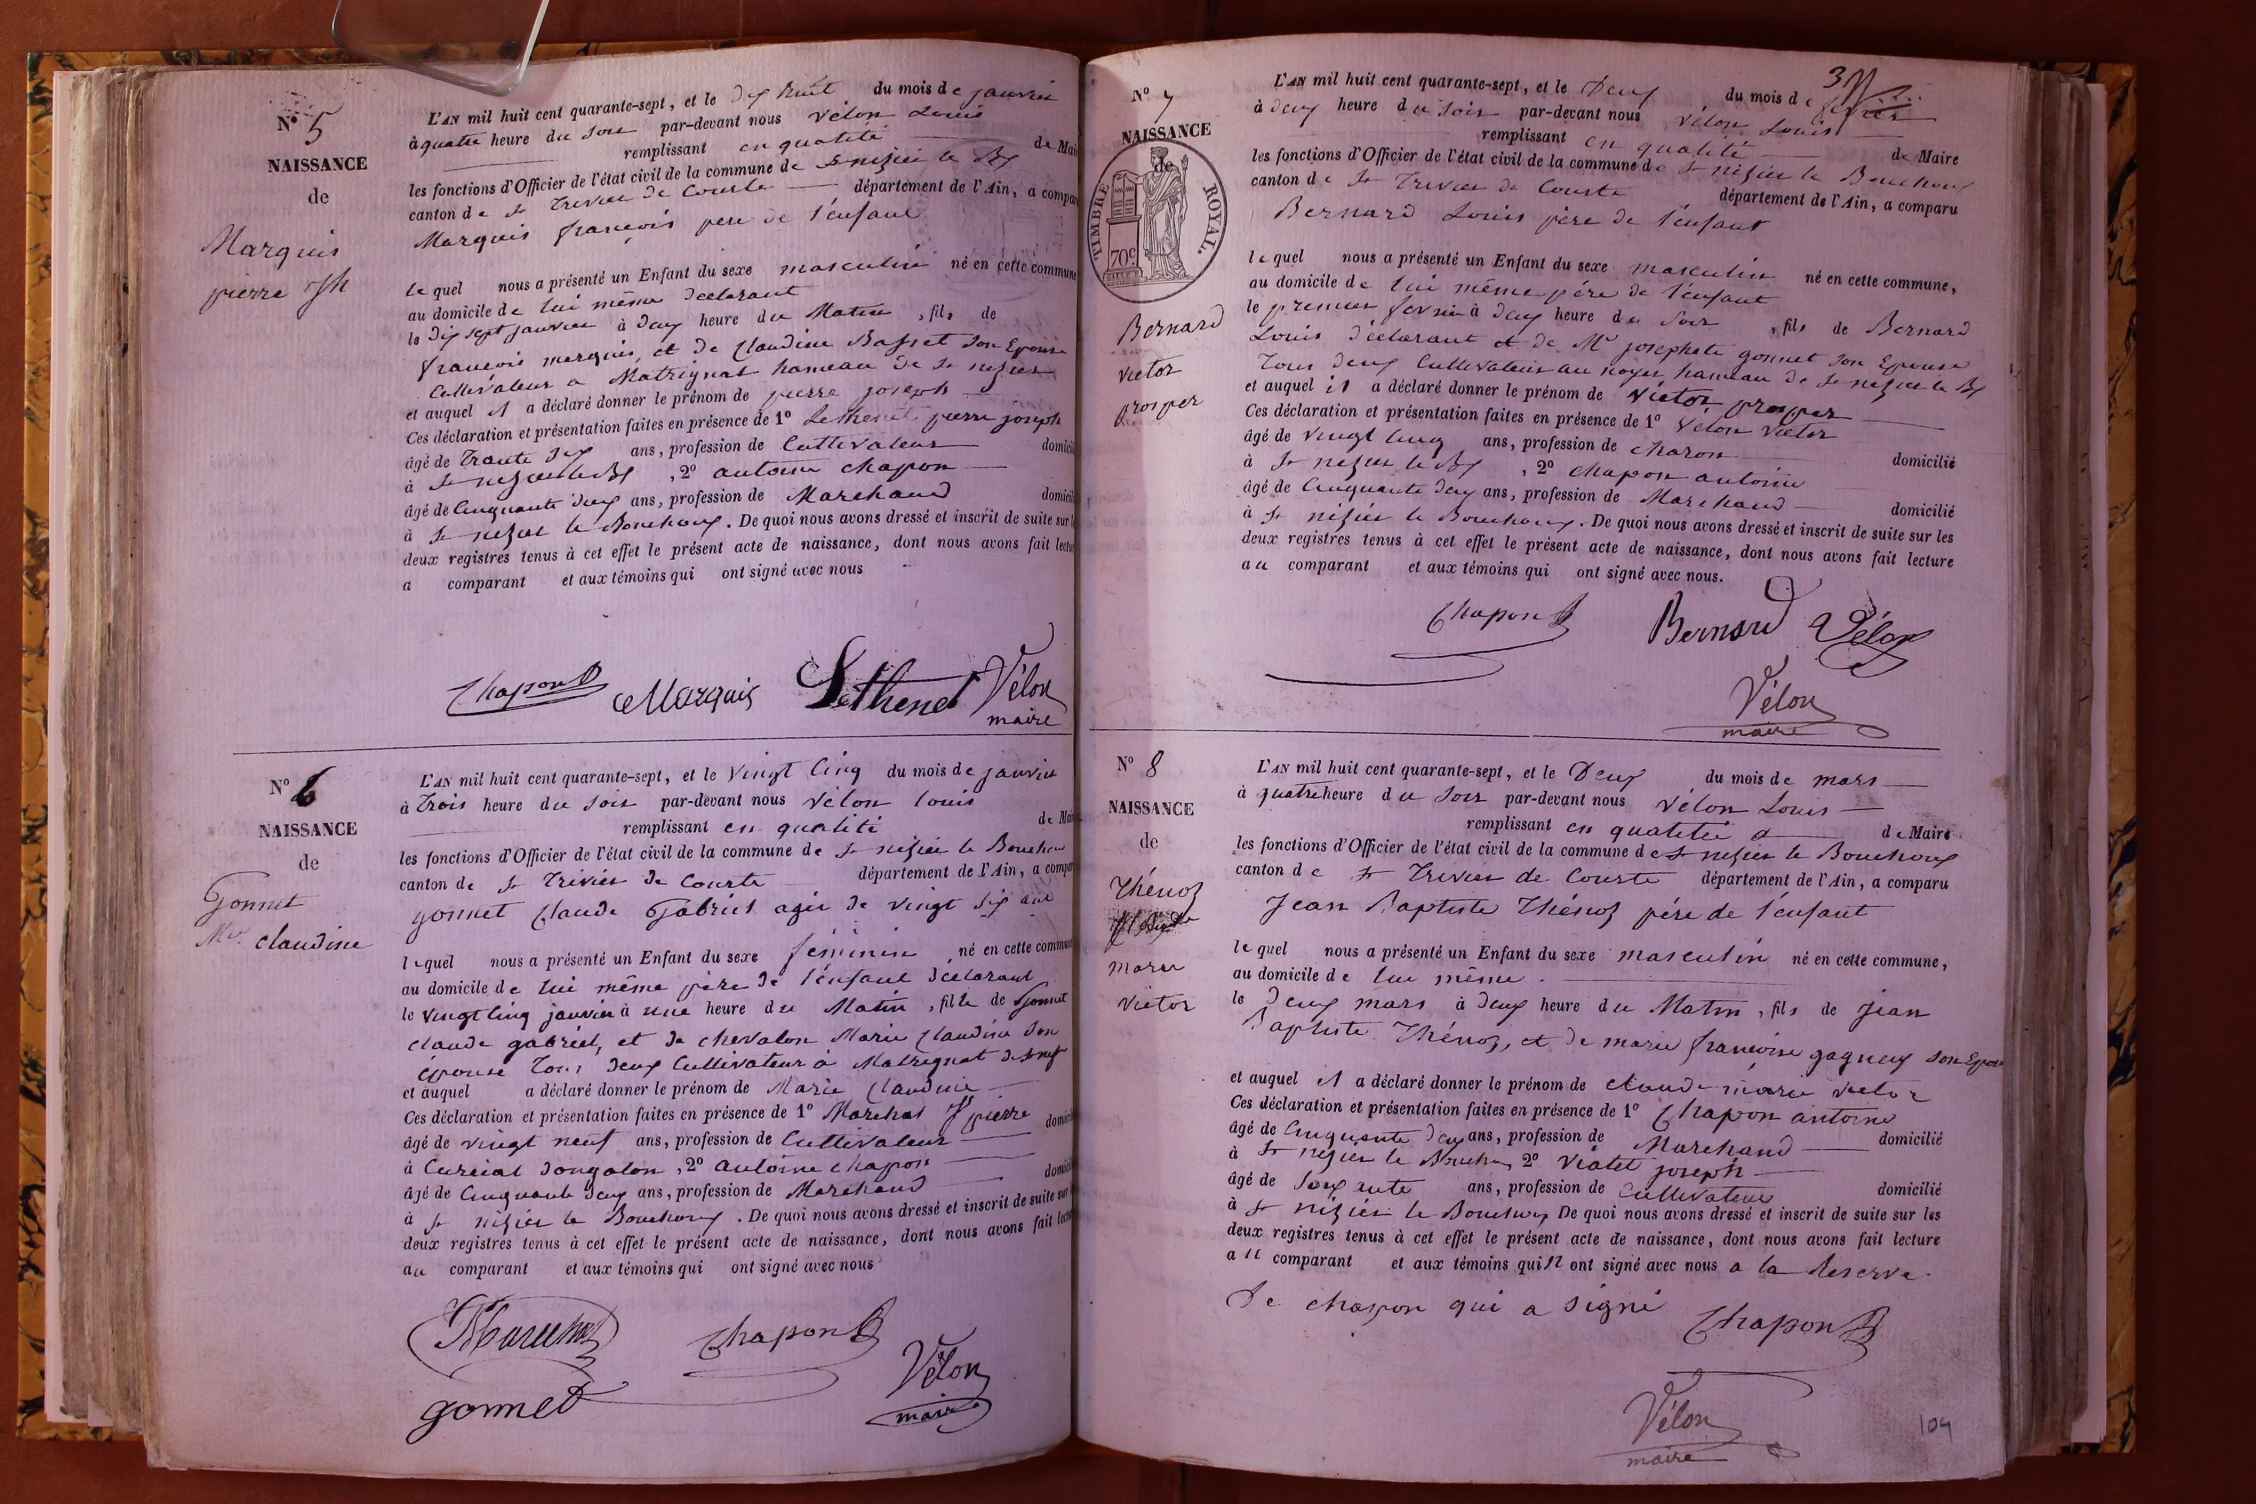 N° 5
NAISSANCE
de
Marquis
pierre Jh
L'AN mil huit cent quarante-sept, et le dix huit du mois de janvier
à quatre heure du soir par-devant nous Vélon Louis
remplissant en qualité de Mai
les fonctions d'Officier de l'état civil de la commune de St nizier le Bx
canton de St Trivier de Courte département de l'Ain, a compar
Marquis françois pere de l'enfant
le quel nous a présenté un Enfant du sexe masculin né en cette commune
au domicile de lui même déclarant
le dix sept janvier à deux heure du Matin, fils de
françois marquis, et de Claudine Basset son Epouse
Cultivateur a Matrignat hameau de St nizier
et auquel il a déclaré donner le prénom de pierre joseph
Ces déclaration et présentation faites en présence de 1° Lethenet pierre joseph
âgé de Trante dex ans, profession de Cultivateur domicil
à St nizier le Bx, 2° antoine chapon
âgé de Cinquante deux ans, profession de Marchand domicil
à St nizier le Bouchoux. De quoi nous avons dressé et inscrit de suite sur l
deux registres tenus à cet effet le présent acte de naissance, dont nous avons fait lectu
a comparant et aux témoins qui ont signé avec nous
Chapon Marquis Lethenet Vélon
maire
N° 6
NAISSANCE
de
Gonnet
Mie claudine
L'AN mil huit cent quarante-sept, et le vingt Cinq du mois de janvier
à trois heure du soir par-devant nous Vélon louis
remplissant en qualité de Mai
les fonctions d'Officier de l'état civil de la commune de St nizier le Bouchou
canton de St Trivier de Courte département de l'Ain, a compar
gonnet Claude Gabriel agée de vingt six ans
lequel nous a présenté un Enfant du sexe féminin né en cette commun
au domicile de lui même père de l'enfant déclarant
le vingt cinq janvier à une heure du Matin, fille de Gonnet
claude gabriel, et de chevalon Marie Claudine son
épouse tous deux Cultivateur à Matregnat de St nizr
et auquel a déclaré donner le prénom de Marie Claudine
Ces déclaration et présentation faites en présence de 1° Marchat Jh pierre
âgé de vingt neuf ans, profession de Cultivateur domici
à Curciat dongalon, 2° antoine chapon
âgé de Cinquante deux ans, profession de Marchand domici
à St nizier le Bouchoux. De quoi nous avons dressé et inscrit de suite sur
deux registres tenus à cet effet le présent acte de naissance, dont nous avons fait lectu
au comparant et aux témoins qui ont signé avec nous
Marchat Chapon Vélon
gonnet maire
N° 7
NAISSANCE
de
TIMBRE ROYAL.
70c
Bernard
victor
prosper
L'AN mil huit cent quarante-sept, et le Deux du mois de fevrier
à deux heure du soir par-devant nous vélon Louis
remplissant en qualité de Maire
les fonctions d'Officier de l'état civil de la commune de St nizier le Bouchoux
canton de St Trivier de Courte département de l'Ain, a comparu
Bernard Louis père de l'enfant
le quel nous a présenté un Enfant du sexe masculin né en cette commune,
au domicile de lui même père de l'enfant
le premier fevrier à deux heure du soir, fils de Bernard
Louis déclarant et de Mie josephete gonnet son Epouse
Tous deux Cultivateur au noyer hameau de St nizier le Bx
et auquel il a déclaré donner le prénom de Victor prosper
Ces déclaration et présentation faites en présence de 1° Vélon Victor
âgé de vingt cinq ans, profession de charon domicilié
à St nizier le Bx, 2° chapon antoine
âgé de Cinquante deux ans, profession de Marchand domicilié
à St nizier le Bouchoux. De quoi nous avons dressé et inscrit de suite sur les
deux registres tenus à cet effet le présent acte de naissance, dont nous avons fait lecture
au comparant et aux témoins qui ont signé avec nous.
Chapon Bernard Vélon
Vélon
maire
N° 8
NAISSANCE
de
Thénoz
marie
victor
L'AN mil huit cent quarante-sept, et le Deux du mois de mars
à quatre heure du soir par-devant nous vélon Louis
remplissant en qualitée de Maire
les fonctions d'Officier de l'état civil de la commune de St nizier le Bouchoux
canton de St Trivier de Courte département de l'Ain, a comparu
Jean Baptiste Thénoz père de l'enfant
le quel nous a présenté un Enfant du sexe masculin né en cette commune,
au domicile de lui même.
le deux mars à deux heure du Matin, fils de Jean
Baptiste Thénoz, et de marie françoise gagneux son Epouse
et auquel il a déclaré donner le prénom de claude marie victor
Ces déclaration et présentation faites en présence de 1° Chapon antoine
âgé de Cinquante deux ans, profession de Marchand domicilié
à St nizier le Bouchou 2° Viatet joseph
âgé de Soixente ans, profession de Cultivateur domicilié
à St nizier le Bouchoux De quoi nous avons dressé et inscrit de suite sur les
deux registres tenus à cet effet le présent acte de naissance, dont nous avons fait lecture
au comparant et aux témoins qui n ont signé avec nous a la Reserve
De chapon qui a signé Chapon
Vélon
maire
104